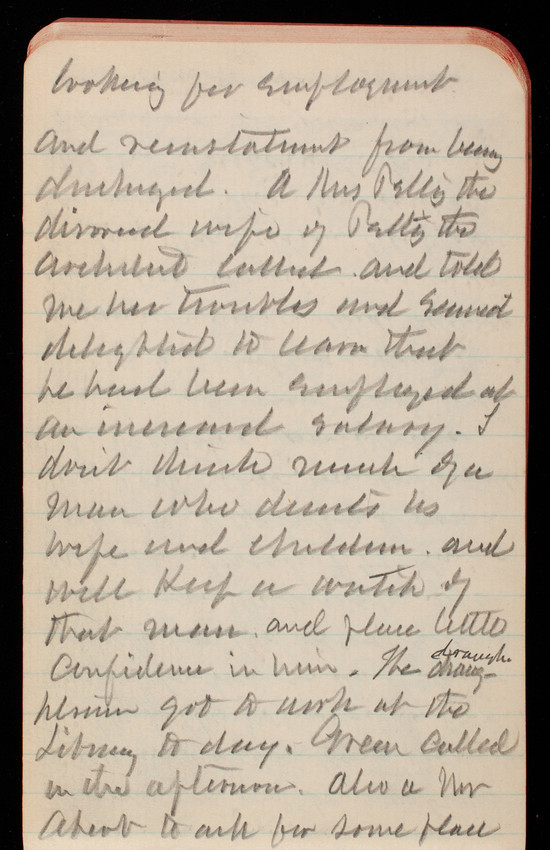 looking for employment
and reinstatment from being
discharged. A Mrs Pelty the
divorced wife of Pelty the
Architect called and told
me her troubles and seemed
delighted to learn that
he had been employed at
an increased salary. I
don't think much of a
man who deserts his
wife and children. and
will keep a watch of
that man. and place little
Confidence in him. The
draughtsmen got to work at the
Library to day. Green called
in the afternoon. Also a Mr
to ask for some place